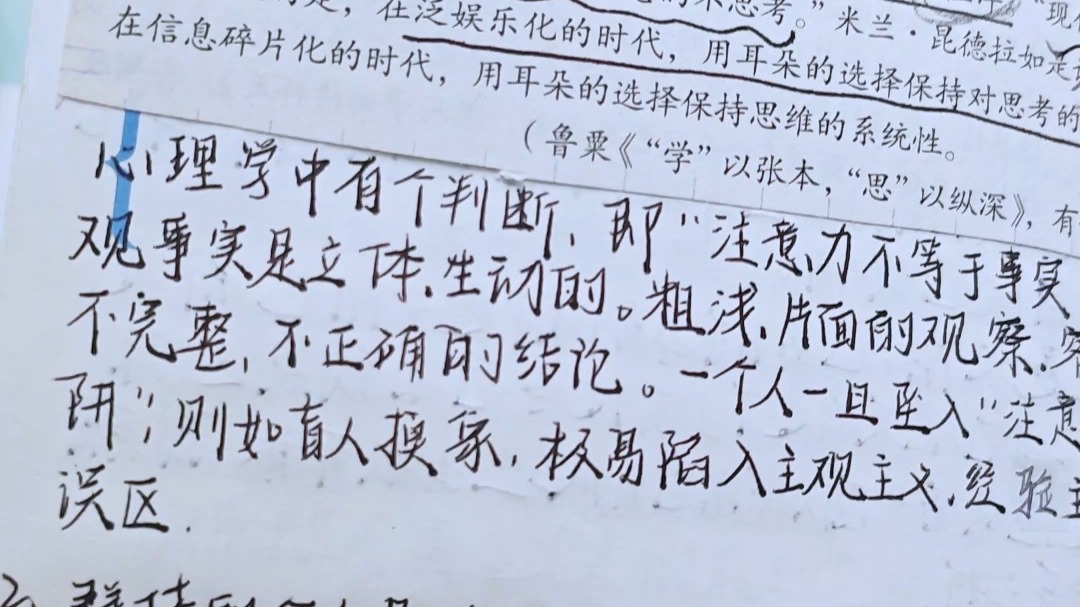 不思考。”米兰·昆德拉如是
在泛娱乐化的时代，用耳朵的选择保持对思考的
在信息碎片化的时代，用耳朵的选择保持思维的系统性。
（鲁粟《“学”以张本，“思”以纵深》，有
心理学中有个判断，即“注意力不等于事实
观事实是立体、生动的。粗浅、片面的观察，容
不完整，不正确的结论。一个人一旦坠入“注意
阱”，则如盲人摸象，极易陷入主观主义、经验主
误区.